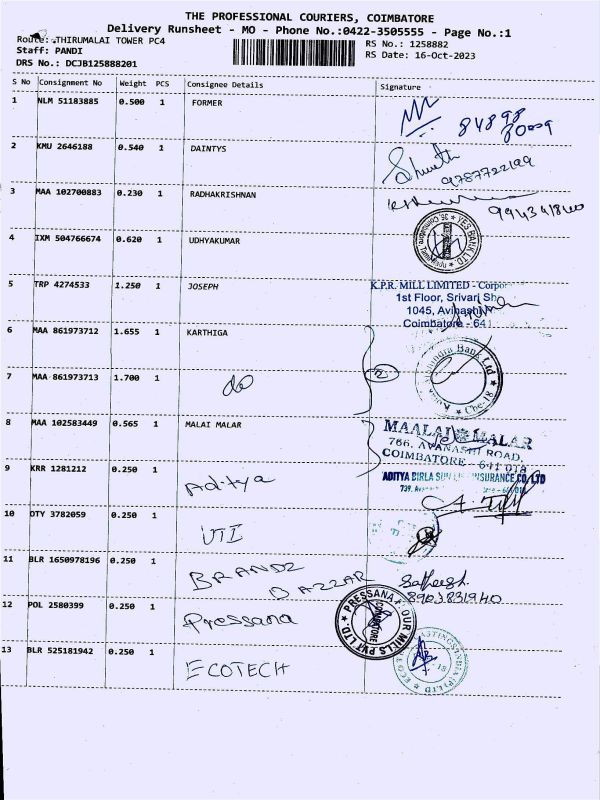 THE PROFESSIONAL COURIERS, COIMBATORE
Delivery Runsheet - MO - Phone No.:0422-3505555 - Page No.:1
Route: THIRUMALAI TOWER PC4
RS No.: 1258882
Staff: PANDI
RS Date: 16-Oct-2023
DRS No.: DCJB125888201
S No Consignment No Weight PCS Consignee Details Signature
1 NLM 51183885 0.500 1 FORMER
84898
80009
2 KMU 2646188 0.540 1 DAINTYS
9787722199
3 MAA 102700883 0.230 1 RADHAKRISHNAN
4 IXM 504766674 0.620 1 UDHYAKUMAR
YES BANK LTD
5 TRP 4274533 1.250 1 JOSEPH
K.P.R. MILL LIMITED - Corpor
1st Floor, Srivari Sho
1045, Avinashi
Coimbatore - 641
6 MAA 861973712 1.655 1 KARTHIGA
Bank Ltd
7 MAA 861973713 1.700 1 do
2
8 MAA 102583449 0.565 1 MALAI MALAR
MAALAI MALAR
766, AVANASHI ROAD,
COIMBATORE - 641 018
9 KRR 1281212 0.250 1 Aditya
ADITYA BIRLA SUN INSURANCE CO. LTD
739,
10 OTY 3782059 0.250 1 UTI
11 BLR 1650978196 0.250 1 BRANDZ BAZZAR
Satheesh.
8903831940
12 POL 2580399 0.250 1 Pressana
PRESSANA FLOUR MILLS PVT LTD.
COIMBATORE
13 BLR 525181942 0.250 1 ECOTECH